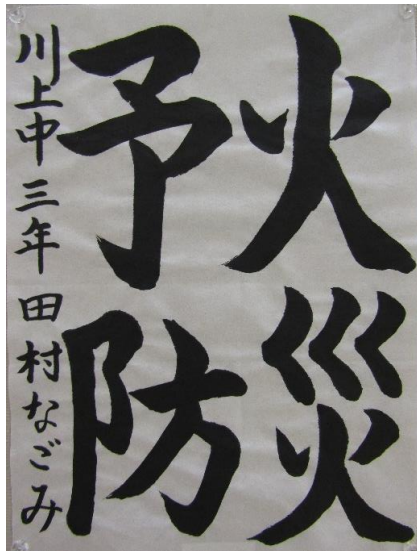 火災
予防
川上中三年 田村なごみ